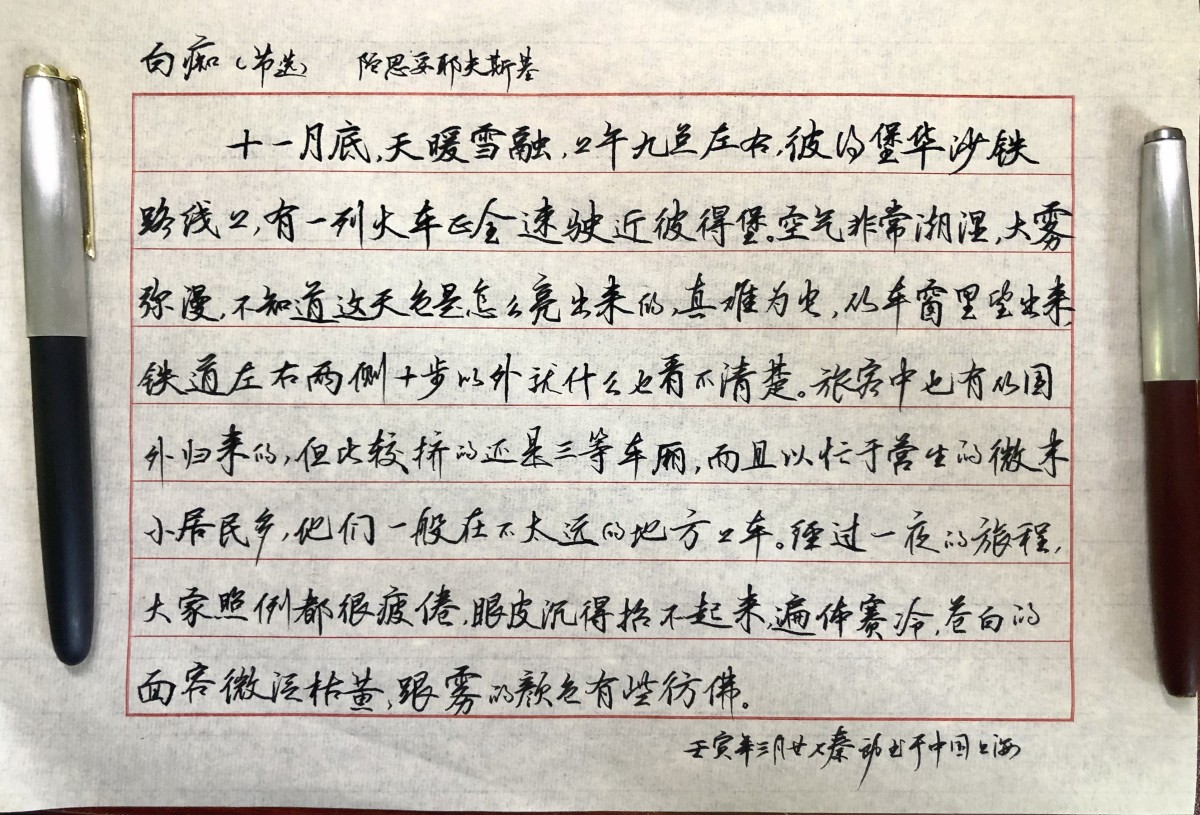 白痴（节选） 陀思妥耶夫斯基
十一月底,天暖雪融,上午九点左右,彼得堡华沙铁
路线上,有一列火车正全速驶近彼得堡。空气非常潮湿,大雾
弥漫,不知道这天色是怎么亮出来的,真难为它,从车窗里望出来,
铁道左右两侧十步以外就什么也看不清楚。旅客中也有从国
外归来的,但比较挤的还是三等车厢,而且以忙于营生的微末
小居民多,他们一般在不太远的地方上车。经过一夜的旅程,
大家照例都很疲倦,眼皮沉得抬不起来,遍体寒冷,苍白的
面容微泛枯黄,跟雾的颜色有些彷佛。
壬寅年三月廿七秦 书于中国上海